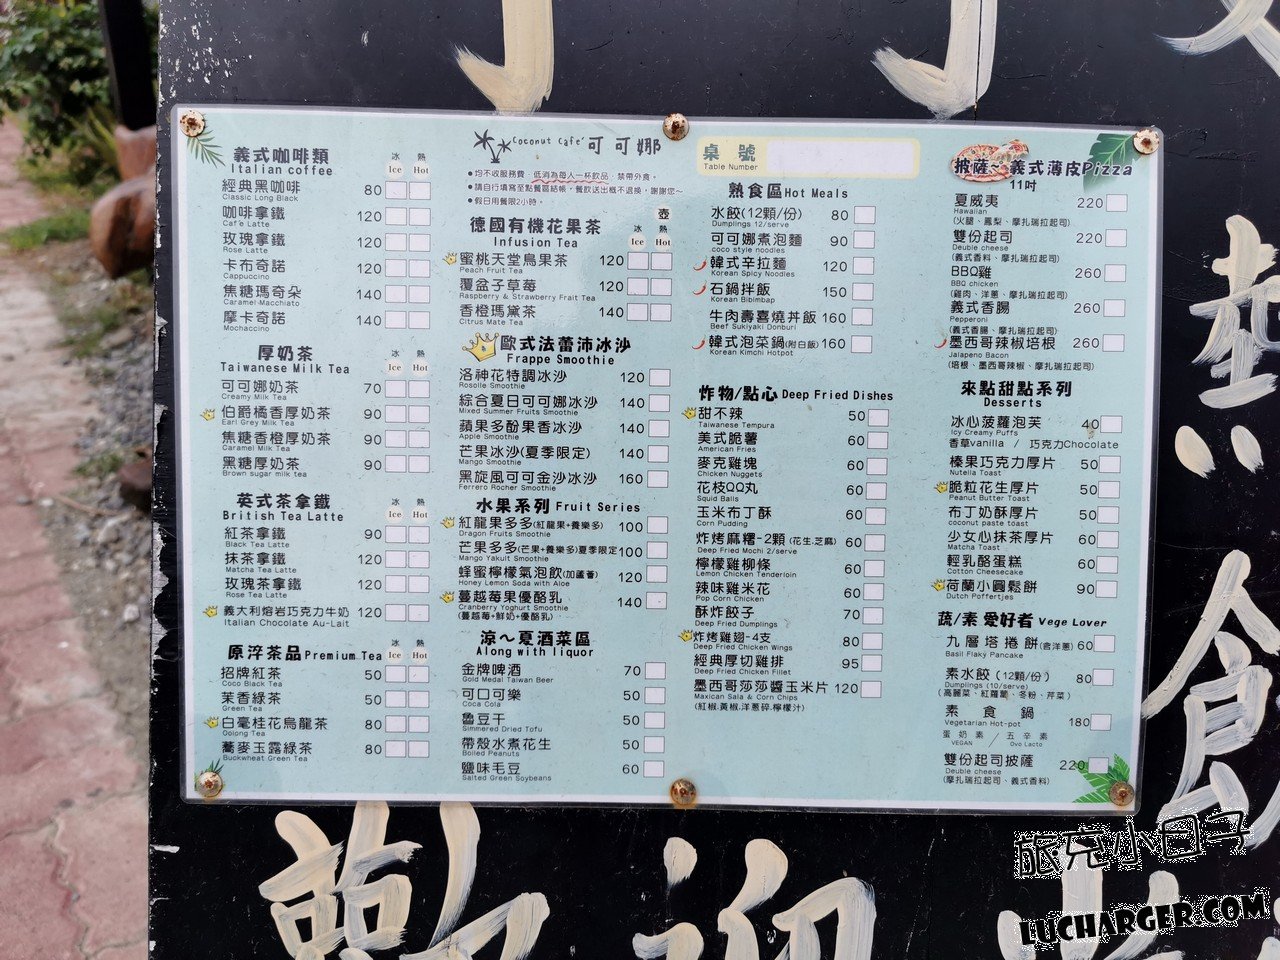 義式咖啡類
Italian coffee
冰 熱
Ice Hot
經典黑咖啡 80
Classic Long Black
咖啡拿鐵 120
Cafe Latte
玫瑰拿鐵 120
Rose Latte
卡布奇諾 120
Cappuccino
焦糖瑪奇朵 140
Caramel Macchiato
摩卡奇諾 140
Mochaccino
厚奶茶
Taiwanese Milk Tea
冰 熱
Ice Hot
可可娜奶茶 70
Creamy Milk Tea
伯爵橘香厚奶茶 90
Earl Grey Milk Tea
焦糖香橙厚奶茶 90
Caramel Milk Tea
黑糖厚奶茶 90
Brown sugar milk tea
英式茶拿鐵
British Tea Latte
冰 熱
Ice Hot
紅茶拿鐵 90
Black Tea Latte
抹茶拿鐵 120
Matcha Tea Latte
玫瑰茶拿鐵 120
Rose Tea Latte
義大利熔岩巧克力牛奶 120
Italian Chocolate Au-Lait
原淬茶品 Premium Tea
冰 熱
Ice Hot
招牌紅茶 50
Coco Black Tea
茉香綠茶 50
Green Tea
白毫桂花烏龍茶 80
Oolong Tea
蕎麥玉露綠茶 80
Buckwheat Green Tea
Coconut Cafe' 可可娜
●均不收服務費，低消為每人一杯飲品，禁帶外食。
●請自行填寫至點餐區結帳，餐飲送出概不退換，謝謝您~
●假日用餐限2小時。
德國有機花果茶
Infusion Tea
壺
冰 熱
Ice Hot
蜜桃天堂鳥果茶 120
Peach Fruit Tea
覆盆子草莓 120
Raspberry & Strawberry Frait Tea
香橙瑪黛茶 140
Citrus Mate Tea
歐式法蕾沛冰沙
Frappe Smoothie
洛神花特調冰沙 120
Rosolle Smoothie
綜合夏日可可娜冰沙 140
Mixed Summer Fruits Smoothie
蘋果多酚果香冰沙 140
Apple Smoothie
芒果冰沙(夏季限定) 140
Mango Smoothie
黑旋風可可金沙冰沙 160
Ferrero Rocher Smoothie
水果系列 Fruit Series
紅龍果多多(紅龍果+養樂多) 100
Dragon Fruits Smoothie
芒果多多(芒果+養樂多)夏季限定 100
Mango Yakult Smoothie
蜂蜜檸檬氣泡飲(加蘆薈) 120
Honey Lemon Soda with Aloe
蔓越莓果優酪乳 140
Cranberry Yoghurt Smoothie
(蔓越莓+鮮奶+優酪乳)
涼～夏酒菜區
Along with liquor
金牌啤酒 70
Gold Medal Taiwan Beer
可口可樂 50
Coca Cola
魯豆干 50
Simmered Dried Tofu
帶殼水煮花生 50
Boiled Peanuts
鹽味毛豆 60
Salted Green Soybeans
桌 號
Table Number
熟食區 Hot Meals
水餃(12顆/份) 80
Dumplings 12/serve
可可娜煮泡麵 90
coco style noodles
韓式辛拉麵 120
Korean Spicy Noodles
石鍋拌飯 150
Korean Bibimbap
牛肉壽喜燒丼飯 160
Beef Sukiyaki Donburi
韓式泡菜鍋(附白飯) 160
Korean Kimchi Hotpot
炸物/點心 Deep Fried Dishes
甜不辣 50
Taiwanese Tempura
美式脆薯 60
American Fries
麥克雞塊 60
Chicken Nuggets
花枝QQ丸 60
Squid Balls
玉米布丁酥 60
Corn Pudding
炸烤麻糬-2顆(花生.芝麻) 60
Deep Fried Mochi 2/serve
檸檬雞柳條 60
Lemon Chicken Tenderloin
辣味雞米花 60
Pop Corn Chicken
酥炸餃子 70
Deep Fried Dumplings
炸烤雞翅-4支 80
Deep Fried Chicken Wings
經典厚切雞排 95
Deep Fried Chicken Fillet
墨西哥莎莎醬玉米片 120
Maxican Sala & Corn Chips
(紅椒.黃椒.洋蔥碎.檸檬汁)
披薩、義式薄皮Pizza
11吋
夏威夷 220
Hawaiian
(火腿、鳳梨、摩扎瑞拉起司)
雙份起司 220
Deuble cheese
(義式香料、摩扎瑞拉起司)
BBQ雞 260
BBQ chicken
(雞肉、洋蔥、摩扎瑞拉起司)
義式香腸 260
Pepperoni
(義式香腸、摩扎瑞拉起司)
墨西哥辣椒培根 260
Jalapeno Bacon
(培根、墨西哥辣椒、摩扎瑞拉起司)
來點甜點系列
Desserts
冰心菠蘿泡芙 40
Icy Creamy Puffs
香草vanilla / 巧克力Chocolate
榛果巧克力厚片 50
Nutella Toast
脆粒花生厚片 50
Peanut Butter Toast
布丁奶酥厚片 50
coconut paste toast
少女心抹茶厚片 60
Matcha Toast
輕乳酪蛋糕 60
Cotton Cheesecake
荷蘭小圓鬆餅 90
Dutch Poffertjes
蔬/素 愛好者 Vege Lover
九層塔捲餅(含洋蔥) 60
Basil Flaky Pancake
素水餃(12顆/份) 80
Dumplings (10/serve)
(高麗菜、紅蘿蔔、冬粉、芹菜)
素食鍋 180
Vegetarian Hot-pot
蛋奶素 / 五辛素
VEGAN Ovo Lacto
雙份起司披薩 220
Deuble cheese
(摩扎瑞拉起司、義式香料)
旅充小日子
LUCHARGER.COM